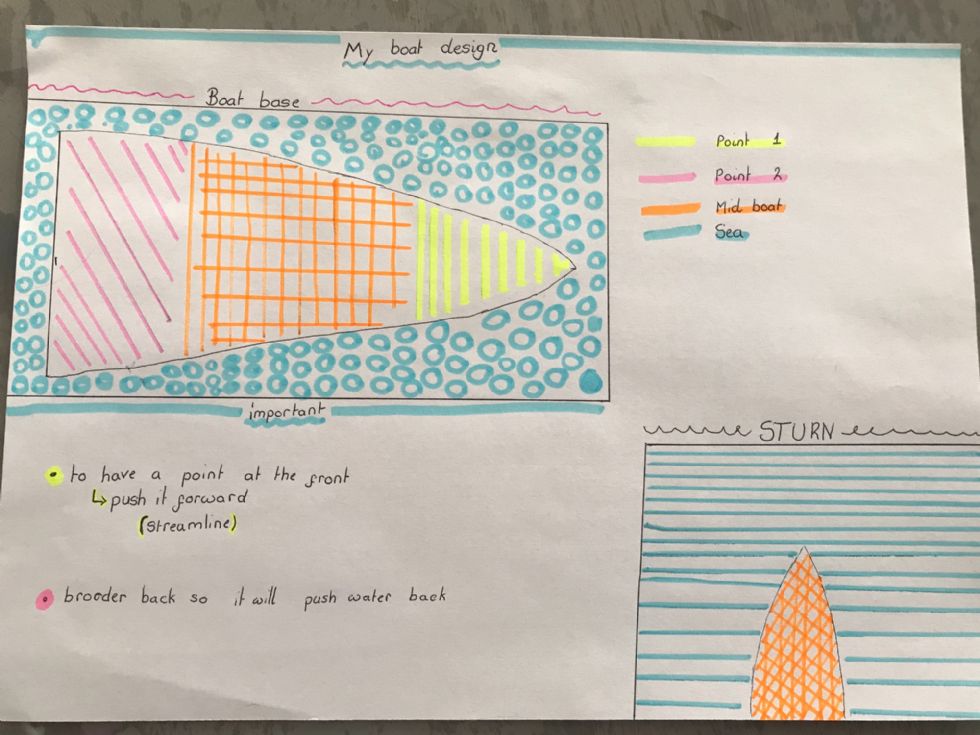 My boat design
Boat base
Point 1
Point 2
Mid boat
Sea
important
to have a point at the front
↳ push it forward
(streamline)
brooder back so it will push water back
STURN